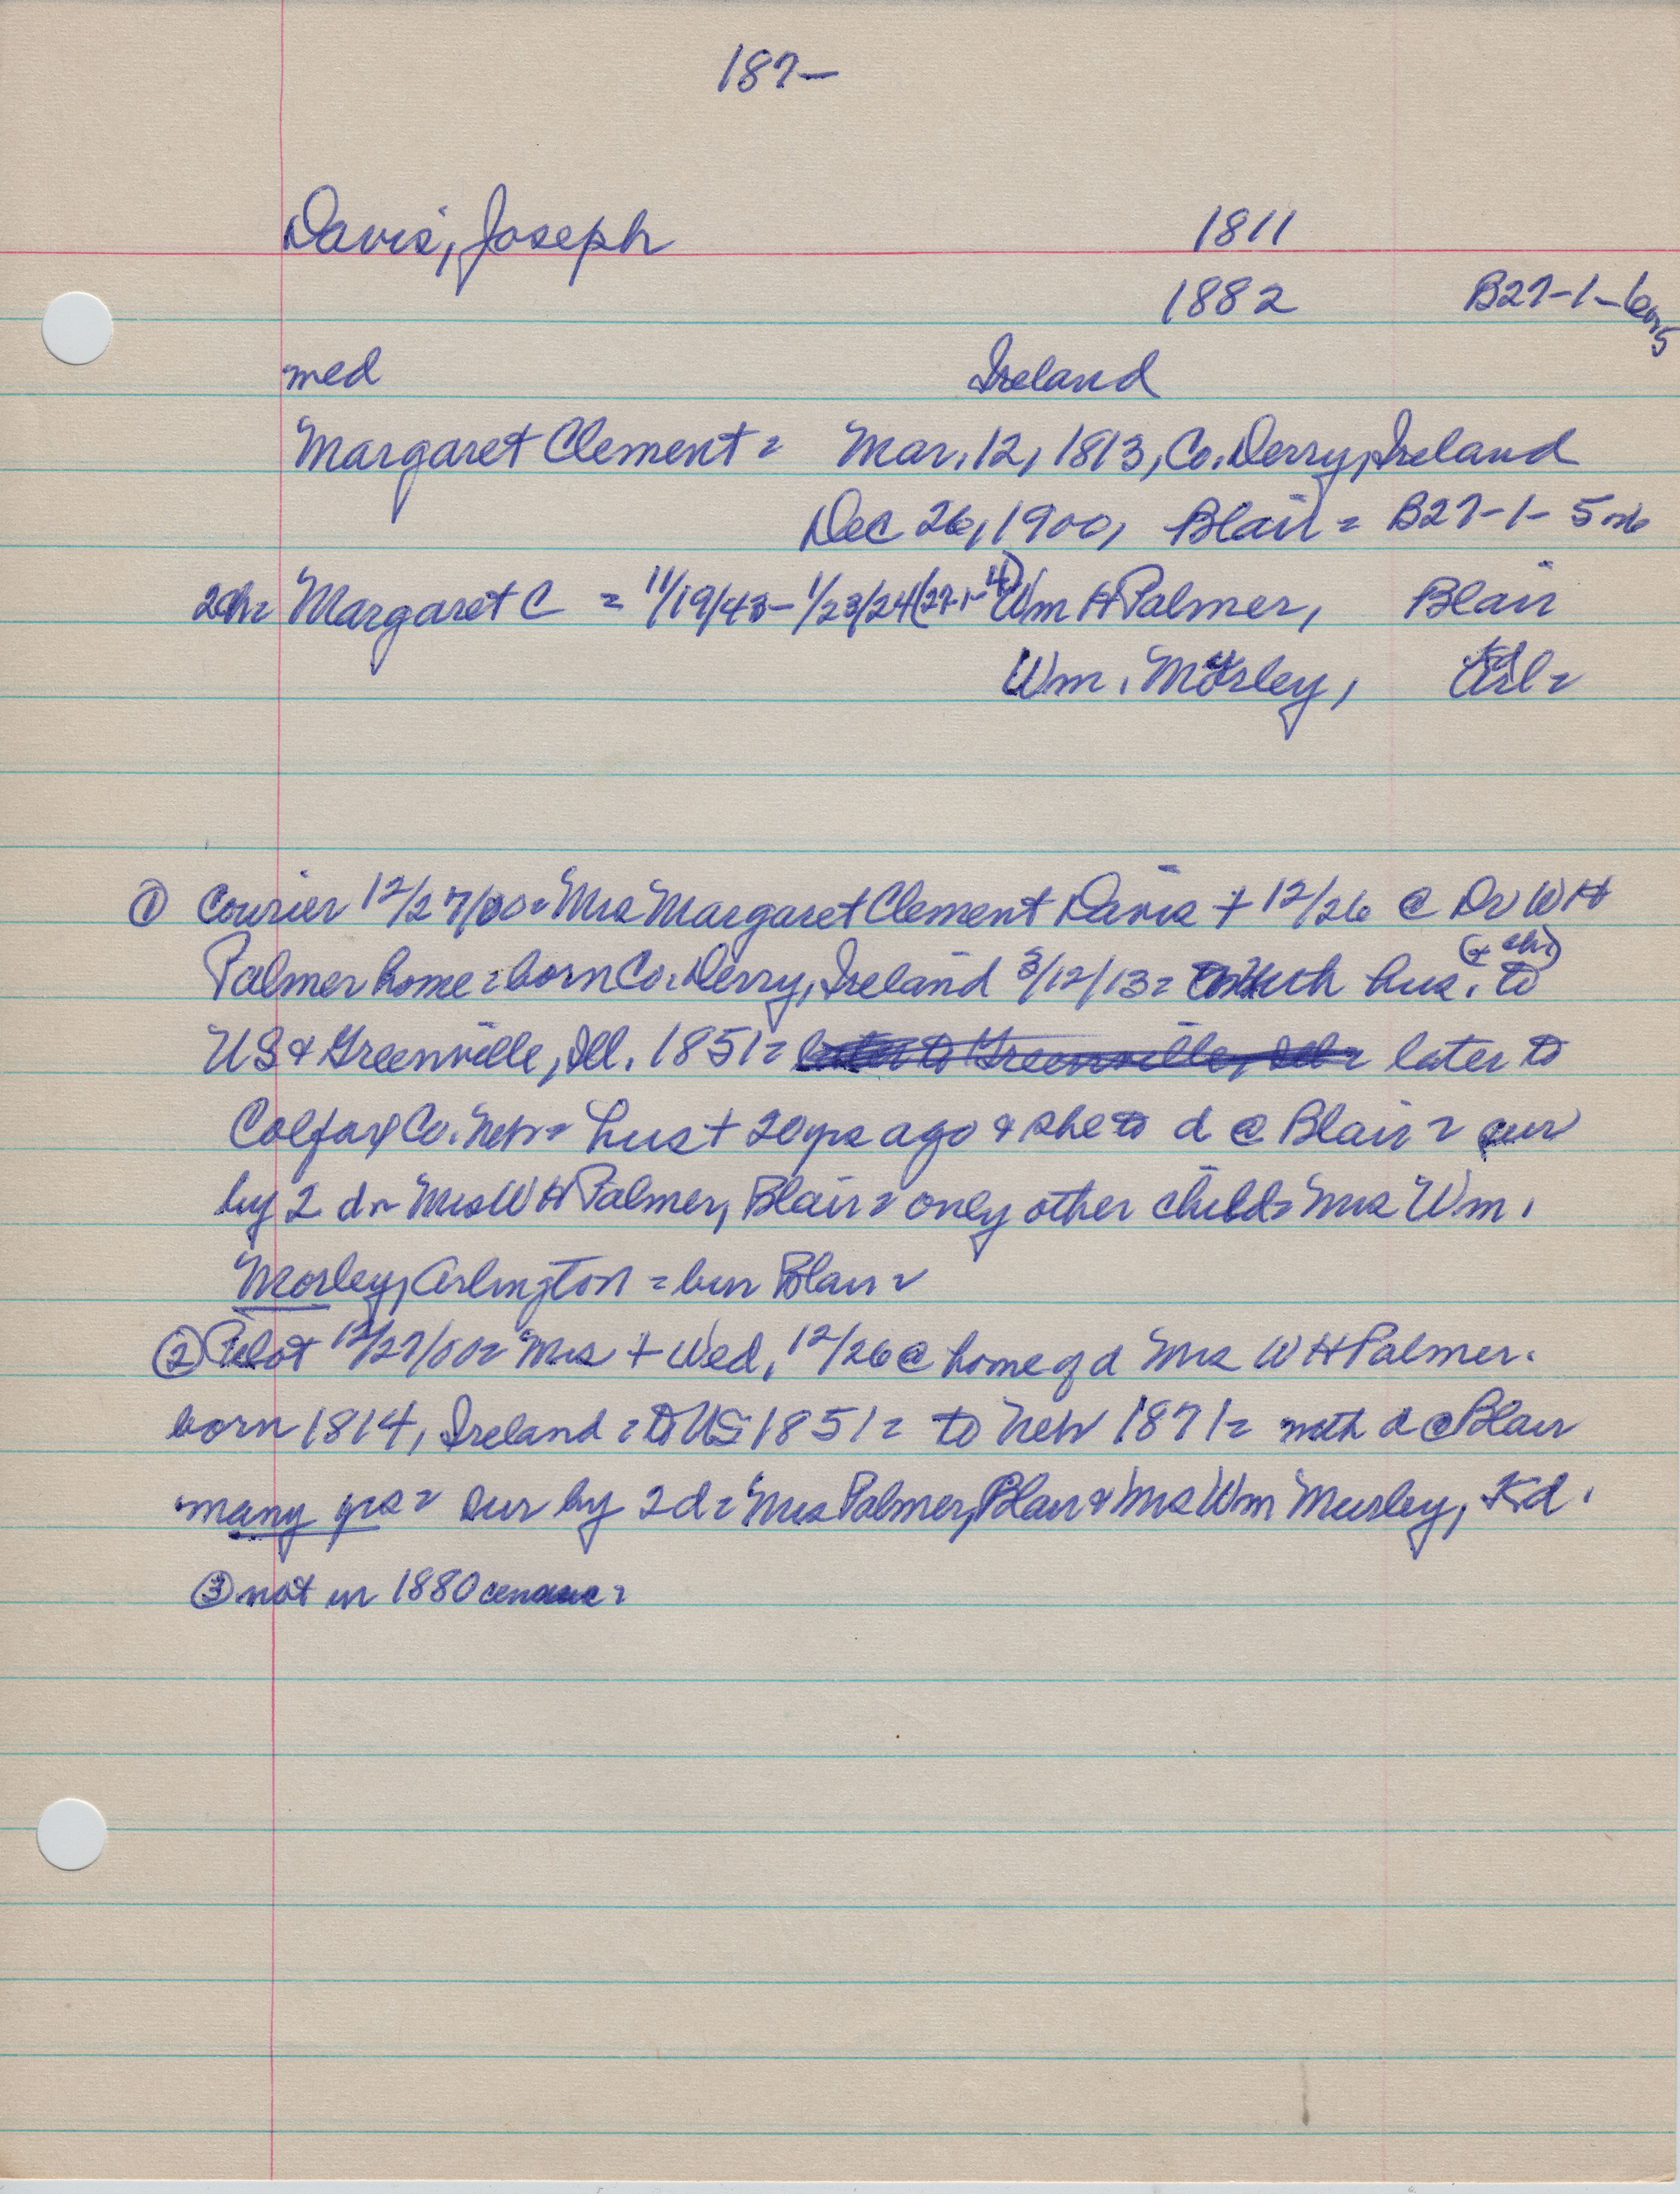 187–
Davis, Joseph 1811
1882 B27-1-6
med Ireland
Margaret Clement = Mar. 12, 1813, Co. Derry, Ireland
Dec 26, 1900, Blair = B27-1-5
2ch= Margaret C = 11/19/43–1/23/24 (27-1-4) Wm H Palmer, Blair
Wm. Morley,
① Courier 12/27/00= Mrs Margaret Clement Davis + 12/26 @ Dr W H
Palmer home = born Co. Derry, Ireland 3/12/13= with hus. (+ ch.) to
US & Greenville, Ill. 1851= later to Greenville, Ill= later to
Colfax Co. Neb= hus + 20 yrs ago & she to d @ Blair = sur
by 2 d = Mrs W H Palmer, Blair = only other child= Mrs Wm.
Morley, Arlington = bur Blair =
② Pilot 12/27/00= Mrs + Wed, 12/26 @ home of d Mrs W H Palmer.
born 1814, Ireland = to US 1851= to Neb 1871= with d @ Blair
many yrs= sur by 2 d= Mrs Palmer, Blair & Mrs Wm Mursley, Kd.
③ not in 1880 census =